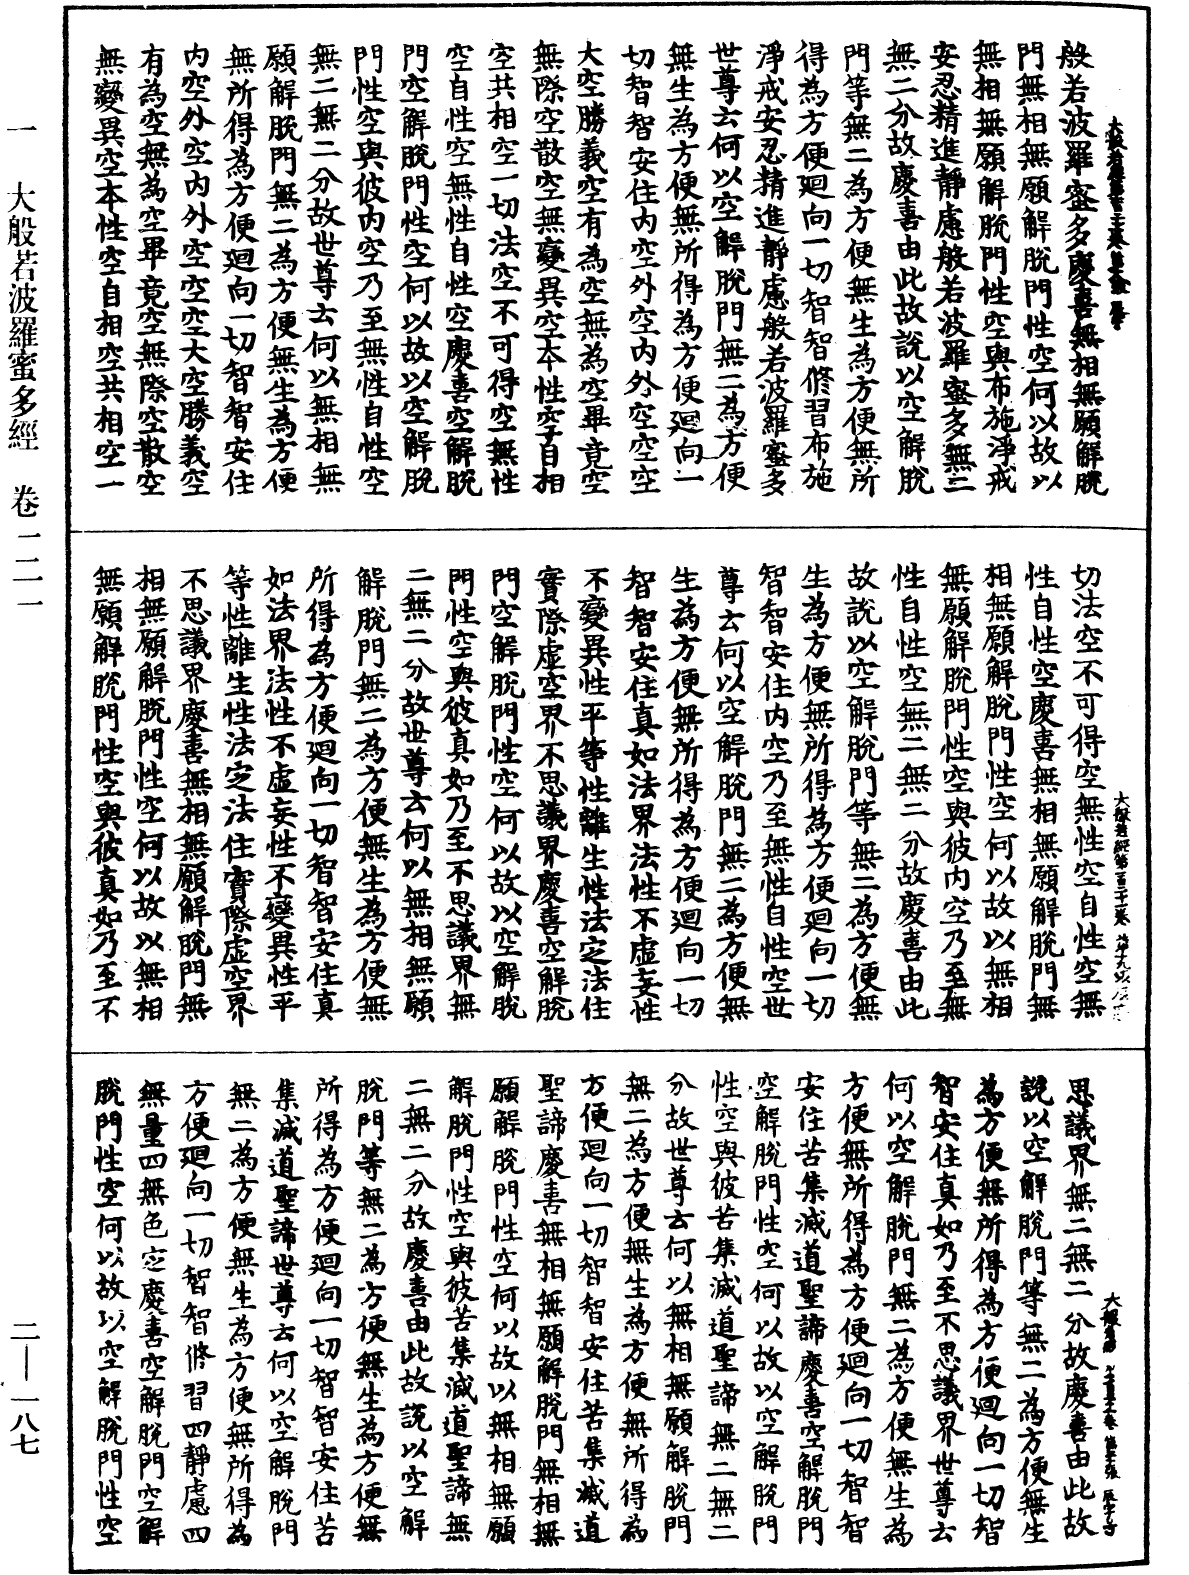 般若波羅蜜多慶喜無相無願解脫
門無相無願解脫門性空何以故以
無相無願解脫門性空與布施淨戒
安忍精進靜慮般若波羅蜜多無二
無二分故慶喜由此故說以空解脫
門等無二為方便無生為方便無所
得為方便迴向一切智智修習布施
淨戒安忍精進靜慮般若波羅蜜多
世尊云何以空解脫門無二為方便
無生為方便無所得為方便迴向一
切智智安住內空外空內外空空空
大空勝義空有為空無為空畢竟空
無際空散空無變異空本性空自相
空共相空一切法空不可得空無性
空自性空無性自性空慶喜空解脫
門空解脫門性空何以故以空解脫
門性空與彼內空乃至無性自性空
無二無二分故世尊云何以無相無
願解脫門無二為方便無生為方便
無所得為方便迴向一切智智安住
內空外空內外空空空大空勝義空
有為空無為空畢竟空無際空散空
無變異空本性空自相空共相空一
切法空不可得空無性空自性空無
性自性空慶喜無相無願解脫門無
相無願解脫門性空何以故以無相
無願解脫門性空與彼內空乃至無
性自性空無二無二分故慶喜由此
故說以空解脫門等無二為方便無
生為方便無所得為方便迴向一切
智智安住內空乃至無性自性空世
尊云何以空解脫門無二為方便無
生為方便無所得為方便迴向一切
智智安住真如法界法性不虛妄性
不變異性平等性離生性法定法住
實際虛空界不思議界慶喜空解脫
門空解脫門性空何以故以空解脫
門性空與彼真如乃至不思議界無
二無二分故世尊云何以無相無願
解脫門無二為方便無生為方便無
所得為方便迴向一切智智安住真
如法界法性不虛妄性不變異性平
等性離生性法定法住實際虛空界
不思議界慶喜無相無願解脫門無
相無願解脫門性空何以故以無相
無願解脫門性空與彼真如乃至不
思議界無二無二分故慶喜由此故
說以空解脫門等無二為方便無生
為方便無所得為方便迴向一切智
智安住真如乃至不思議界世尊云
何以空解脫門無二為方便無生為
方便無所得為方便迴向一切智智
安住苦集滅道聖諦慶喜空解脫門
空解脫門性空何以故以空解脫門
性空與彼苦集滅道聖諦無二無二
分故世尊云何以無相無願解脫門
無二為方便無生為方便無所得為
方便迴向一切智智安住苦集滅道
聖諦慶喜無相無願解脫門無相無
願解脫門性空何以故以無相無願
解脫門性空與彼苦集滅道聖諦無
二無二分故慶喜由此故說以空解
脫門等無二為方便無生為方便無
所得為方便迴向一切智智安住苦
集滅道聖諦世尊云何以空解脫門
無二為方便無生為方便無所得為
方便迴向一切智智修習四靜慮四
無量四無色定慶喜空解脫門空解
脫門性空何以故以空解脫門性空
一 大般若波羅蜜多經 卷一二一
二—一八七